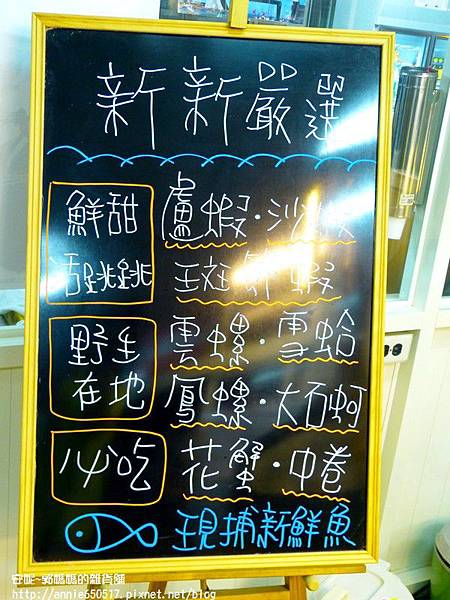 新新嚴選
鮮甜
活跳跳
盧蝦·沙蝦
斑節蝦
野生
在地
雲螺·雪蛤
鳳螺·大石蚵
必吃
花蟹·中卷
現捕新鮮魚
安妮~郭媽媽的雜貨舖
http://annie650517.pixnet.net/blog